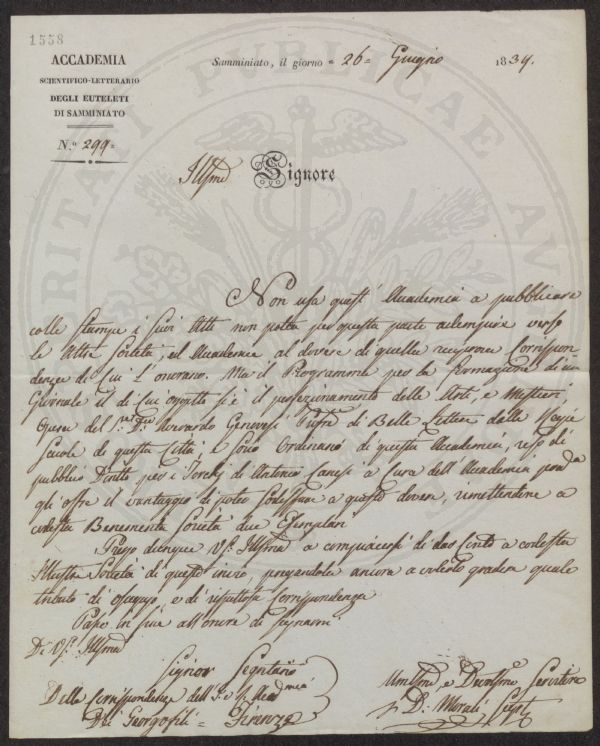 1558
ACCADEMIA
SCIENTIFICO-LETTERARIO
DEGLI EUTELETI
DI SAMMINIATO
N.° 299=
Samminiato, il giorno = 26 = Giugno 1834.
Illmo Signore
Non usa quest' Accademia a pubblicare
colle Stampe i suoi Atti non potea per questa parte adempire verso
le Altre Società, ed Accademie al dovere di quella reciproca Corrispon-
denza di cui l'onorano. Ma il Programma per la formazione di un
Giornale il di cui oggetto si è il perfezionamento delle Arti, e Mestieri,
Opera del Genovesi Profre di Belle Lettere delle Regie
Scuole di questa Città, e Socio Ordinario di questa Accademia, reso di
pubblico Diritto per i Torchj di Antonio Canesi a Cura dell'Accademia
gli offre il vantaggio di poter sodisfare a questo dovere, rimettendone a
codesta Benemerita Società due Esemplari
Prego dunque VS. Illma a compiacersi di dar Conto a codesta
Illustre Società di questo invio, pregandola ancora a volerlo gradire quale
tributo di ossequio e di rispettosa Corrispondenza
Passo in fine all'onore di segnarmi
Di VS. Illma
Signor Segretario
Delle Corrispondenze dell' I. e R. Accademia
Dei Georgofili = Firenze
Umilmo e Devotmo Servitore
D. Morali Segr